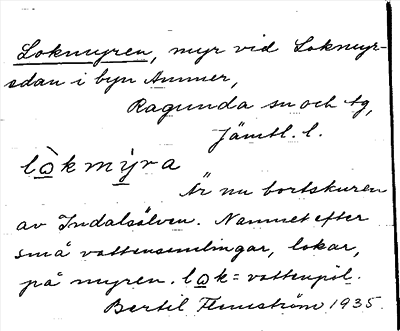 Lokmyren, myr vid Lokmyr-
ådan i byn Ammer,
Ragunda sn och tg,
Jämtl. l.
lò̲kmỳ̲ra
Är nu bortskuren
av Indalsälven. Namnet efter
små vattensamlingar, lokar,
på myren. lo̲k = vattenpöl.
Bertil Flemström 1935.